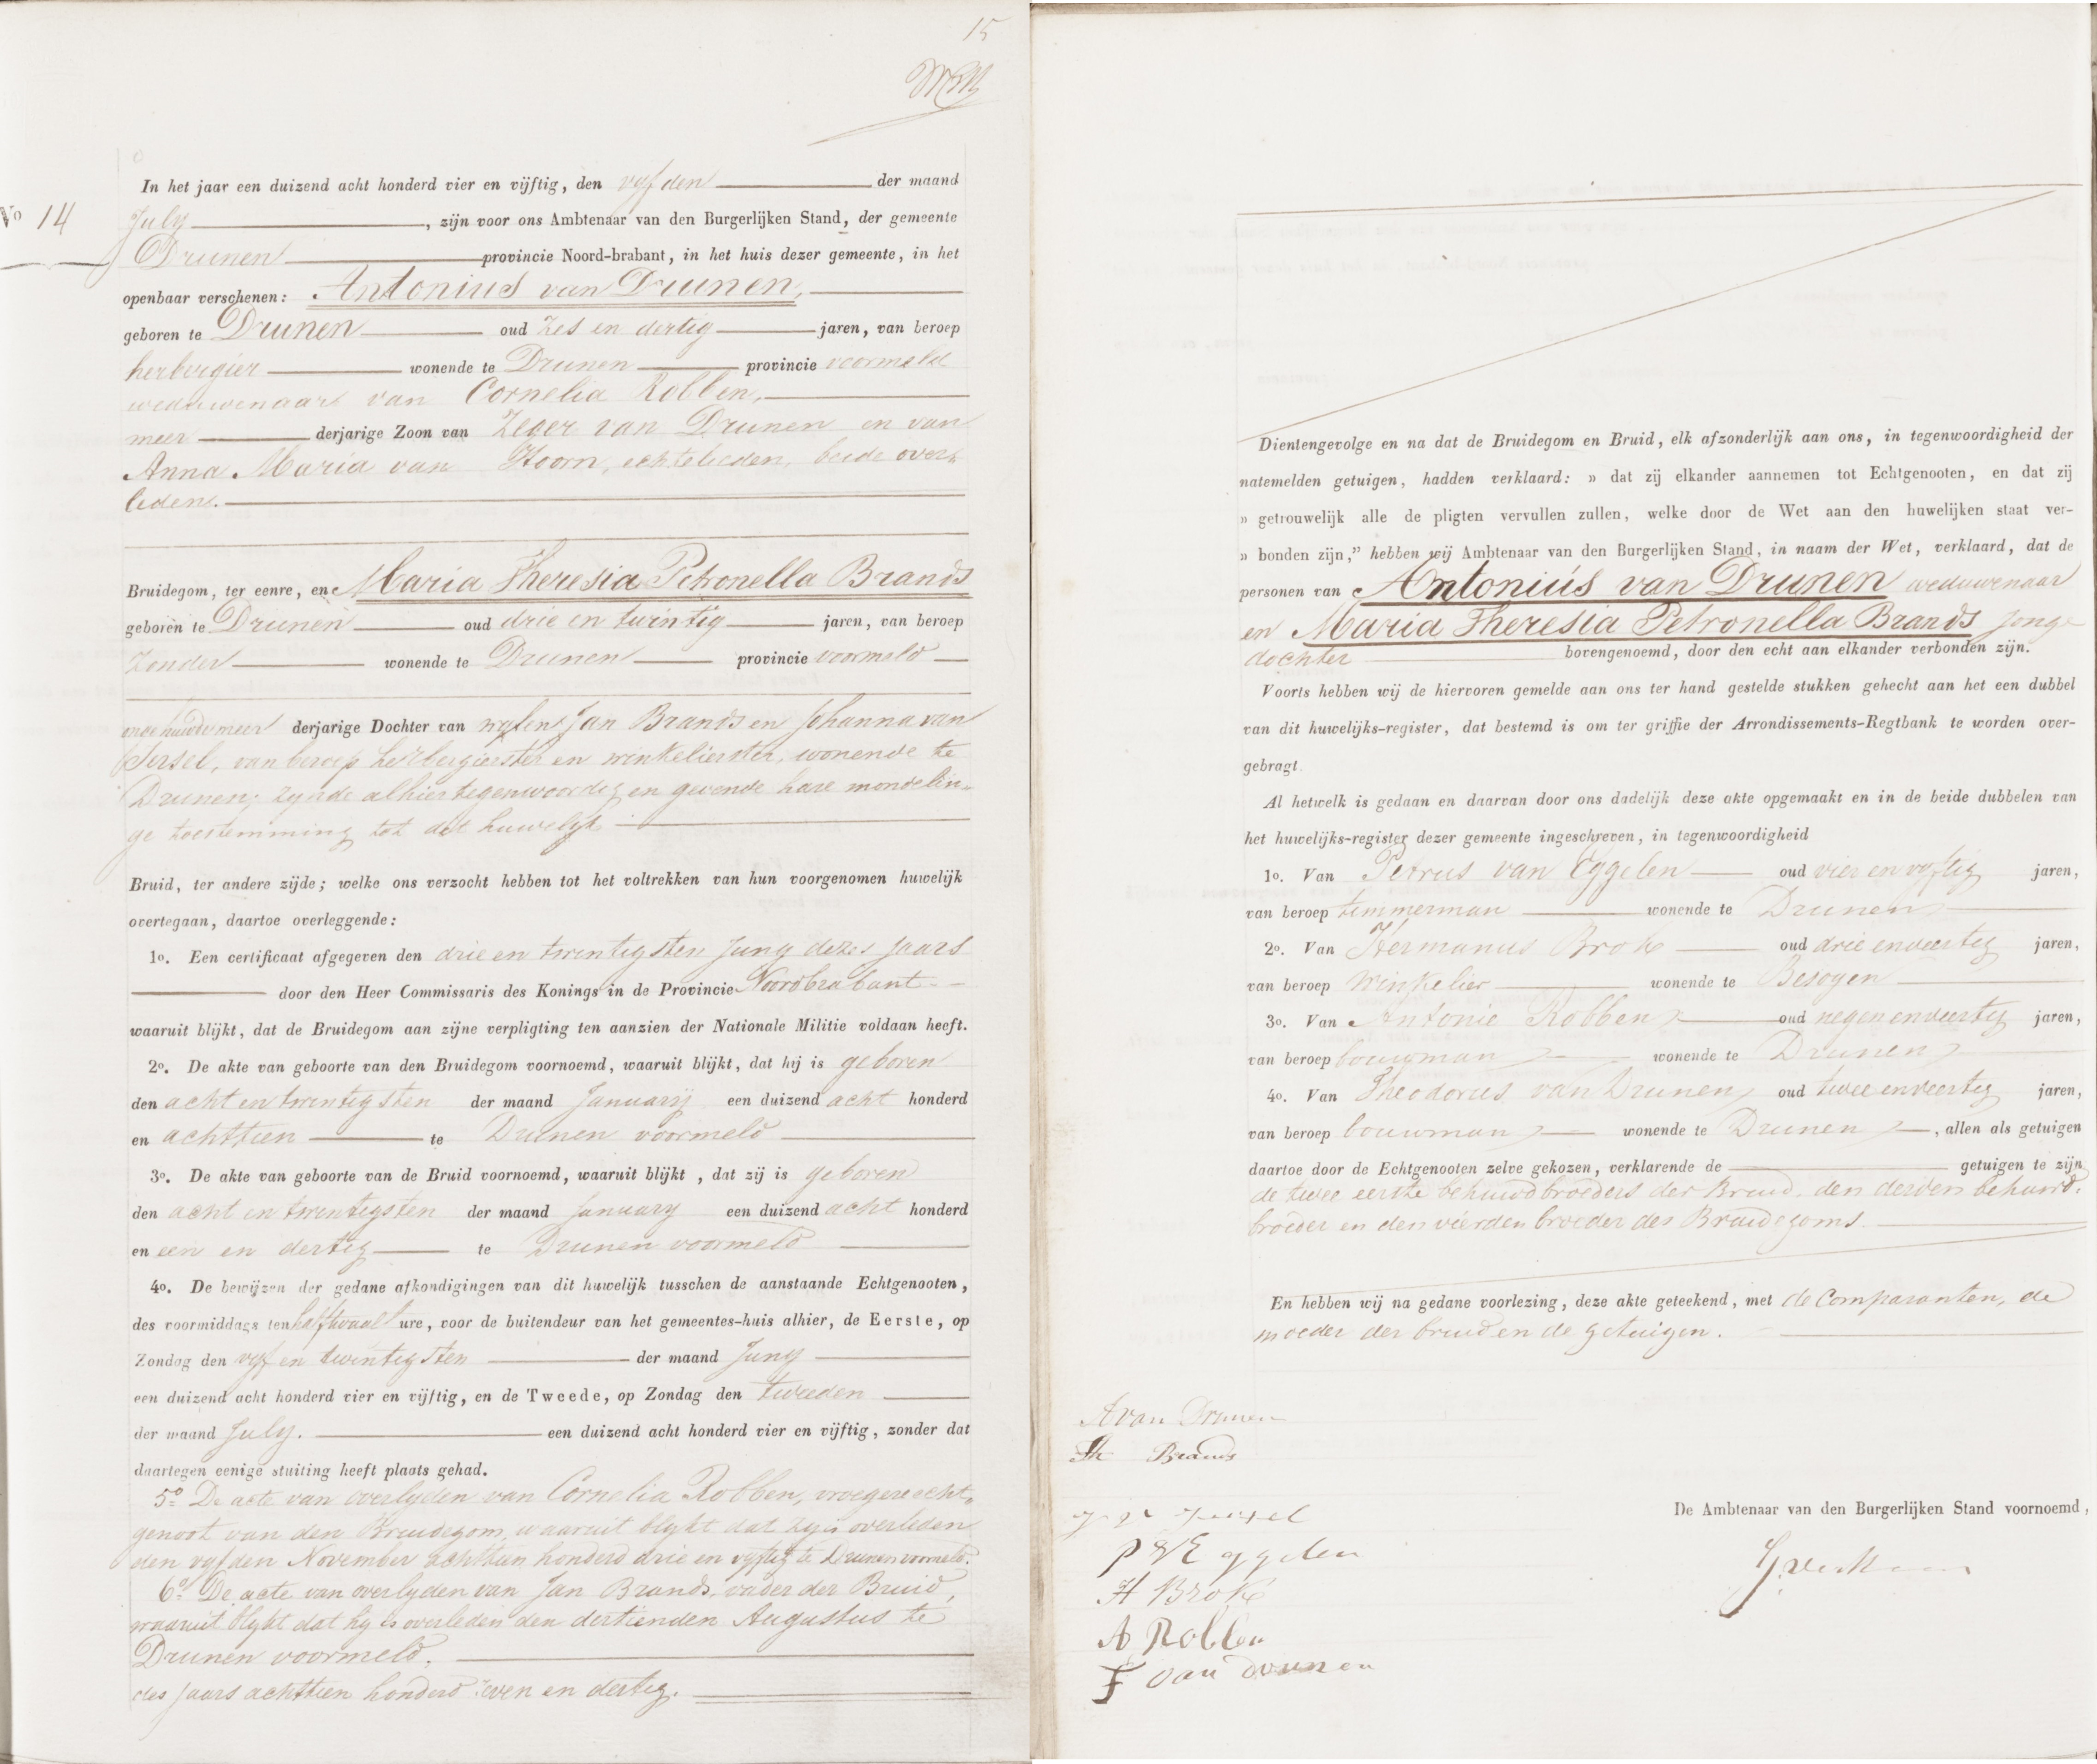 15
No 14
In het jaar een duizend acht honderd vier en vijftig, den vyfden der maand
July, zijn voor ons Ambtenaar van den Burgerlijken Stand, der gemeente
Drunen provincie Noord-brabant, in het huis dezer gemeente, in het
openbaar verschenen: Antonius van Drunen,
geboren te Drunen oud zes en dertig jaren, van beroep
herbergier wonende te Drunen provincie voormeld
weduwenaar van Cornelia Robben,
meer derjarige Zoon van Zeger van Drunen en van
Anna Maria van Hoorn, echtelieden, beide over-
leden.
Bruidegom, ter eenre, en Maria Theresia Petronella Brands
geboren te Drunen oud drie en twintig jaren, van beroep
zonder wonende te Drunen provincie voormeld
meer derjarige Dochter van wylen Jan Brands en Johanna van
Iersel, van beroep herbergierster en winkelierster, wonende te
Drunen; zynde alhier tegenwoordig en gevende hare mondelin-
ge toestemming tot dit huwelyk
Bruid, ter andere zijde; welke ons verzocht hebben tot het voltrekken van hun voorgenomen huwelijk
overtegaan, daartoe overleggende:
1o. Een certificaat afgegeven den drie en twintigsten Juny dezes jaars
door den Heer Commissaris des Konings in de Provincie Noordbrabant
waaruit blijkt, dat de Bruidegom aan zijne verpligting ten aanzien der Nationale Militie voldaan heeft.
2o. De akte van geboorte van den Bruidegom voornoemd, waaruit blijkt, dat hij is geboren
den acht en twintigsten der maand January een duizend acht honderd
en achttien te Drunen voormeld
3o. De akte van geboorte van de Bruid voornoemd, waaruit blijkt, dat zij is geboren
den acht en twintigsten der maand January een duizend acht honderd
en een en dertig te Drunen voormeld
4o. De bewijzen der gedane afkondigingen van dit huwelijk tusschen de aanstaande Echtgenooten,
des voormiddags ten halftwaalf ure, voor de buitendeur van het gemeentes-huis alhier, de Eerste, op
Zondag den vyf en twintigsten der maand Juny
een duizend acht honderd vier en vijftig, en de Tweede, op Zondag den tweeden
der maand July. een duizend acht honderd vier en vijftig, zonder dat
daartegen eenige stuiting heeft plaats gehad.
5o De acte van overlyden van Cornelia Robben, vroegere echt-
genoot van den Bruidegom, waaruit blykt dat zy is overleden
den vyfden November achttien honderd drie en vyftig te Drunen voormeld.
6o De acte van overlyden van Jan Brands, vader der Bruid,
waaruit blykt dat hy is overleden den dertienden Augustus te
Drunen voormeld,
des jaars achttien honderd zeven en dertig.
Dientengevolge en na dat de Bruidegom en Bruid, elk afzonderlijk aan ons, in tegenwoordigheid der
natemelden getuigen, hadden verklaard: » dat zij elkander aannemen tot Echtgenooten, en dat zij
» getrouwelijk alle de pligten vervullen zullen, welke door de Wet aan den huwelijken staat ver-
» bonden zijn,” hebben wij Ambtenaar van den Burgerlijken Stand, in naam der Wet, verklaard, dat de
personen van Antonius van Drunen weduwenaar
en Maria Theresia Petronella Brands jonge
dochter bovengenoemd, door den echt aan elkander verbonden zijn.
Voorts hebben wij de hiervoren gemelde aan ons ter hand gestelde stukken gehecht aan het een dubbel
van dit huwelijks-register, dat bestemd is om ter griffie der Arrondissements-Regtbank te worden over-
gebragt.
Al hetwelk is gedaan en daarvan door ons dadelijk deze akte opgemaakt en in de beide dubbelen van
het huwelijks-register dezer gemeente ingeschreven, in tegenwoordigheid
1o. Van Petrus van Eggelen oud vier en vyftig jaren,
van beroep timmerman wonende te Drunen
2o. Van Hermanus Brok oud drie en veertig jaren,
van beroep winkelier wonende te Besoyen
3o. Van Antonie Robben oud negen en veertig jaren,
van beroep bouwman wonende te Drunen
4o. Van Theodorus van Drunen, oud twee en veertig jaren,
van beroep bouwman wonende te Drunen, allen als getuigen
daartoe door de Echtgenooten zelve gekozen, verklarende de getuigen te zijn
de twee eerste behuwdbroeders der Bruid, den derden behuwd-
broeder en den vierden broeder des Bruidegoms.
En hebben wij na gedane voorlezing, deze akte geteekend, met de Comparanten, de
moeder der bruid en de getuigen.
A van Drunen
Th Brands
De Ambtenaar van den Burgerlijken Stand voornoemd,
P V Eggelen
H Brok
A Robben
F van drunen